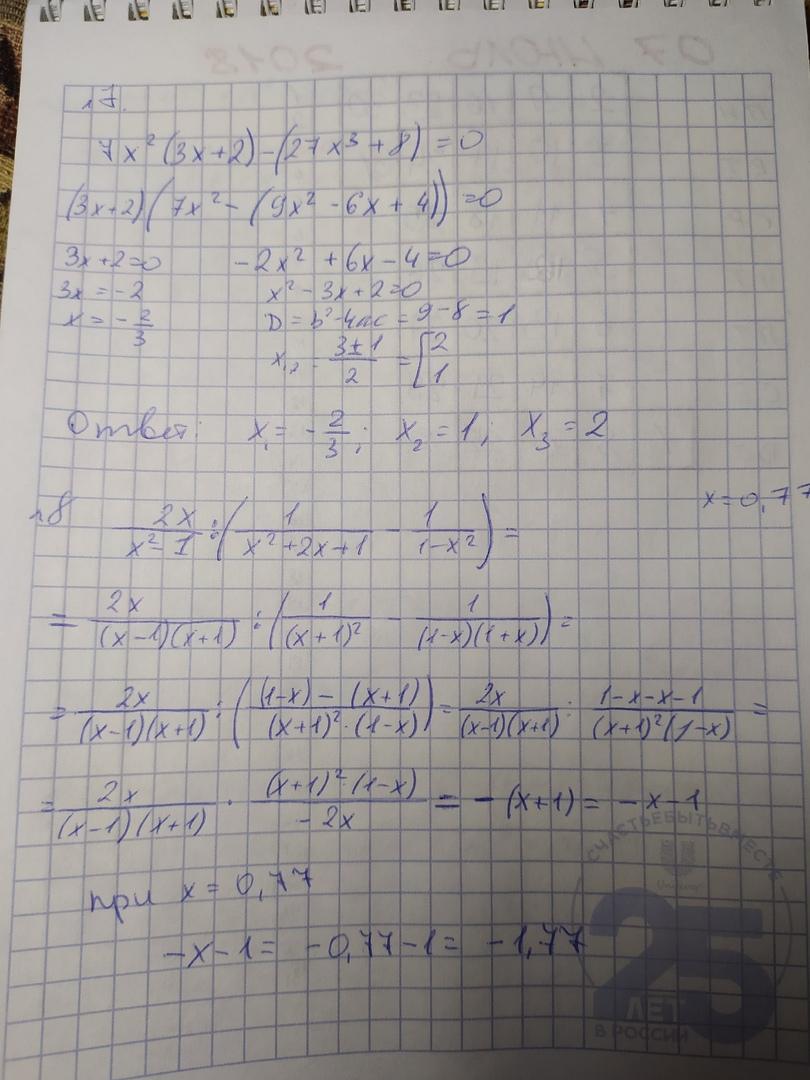 07 ИЮЛЬ 2018
№7.
7x² (3x+2) - (27x³ + 8) = 0
(3x+2)(7x² - (9x² - 6x + 4)) = 0
3x+2=0 -2x² + 6x - 4 = 0
3x = -2 x² - 3x + 2 = 0
x = -2/3 D = b² - 4ac = 9 - 8 = 1
x₁,₂ = (3±1)/2 = [2 1
Ответ: x₁ = -2/3; x₂ = 1; x₃ = 2
x = 0,77
№8 2x/(x²-1) : (1/(x²+2x+1) - 1/(1-x²)) =
= 2x/((x-1)(x+1)) : (1/(x+1)² - 1/((1-x)(1+x))) =
= 2x/((x-1)(x+1)) : (((1-x) - (x+1))/((x+1)²·(1-x))) = 2x/((x-1)(x+1)) : (1-x-x-1)/((x+1)²(1-x)) =
= 2x/((x-1)(x+1)) · ((x+1)²·(1-x))/(-2x) = -(x+1) = -x-1
при x = 0,77
-x-1 = -0,77-1 = -1,77
СЧАСТЬЕБЫТЬВМЕСТЕ
Unilever
25
ЛЕТ
В РОССИИ